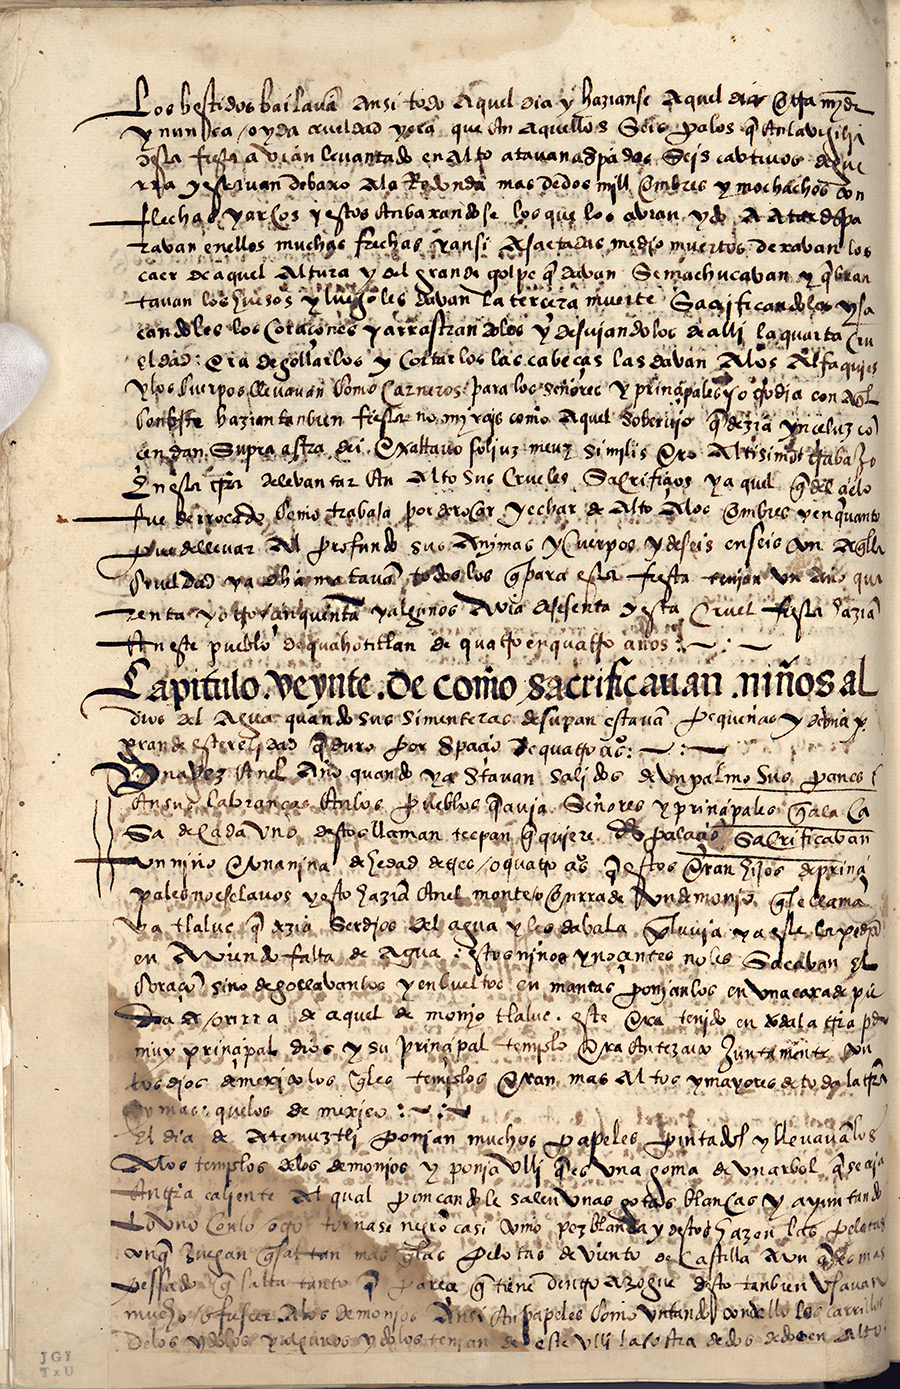 Los bestidos bailavā ansi todo aquel dia y hazianse aquel dia otra may.or
y nunca /oyda crueldad y era que en aquellos seis palos q̄ en la vigilia
desta fiesta avian levantado en alto atavan aspados seis cautivos de gue
rra y estavan debaxo a la Redonda mas de dos mill ombres y mochachos con
flechas y arcos y estos en baxandose los que los avian ydo a atar dispa
ravan en ellos muchas frechas y ansi asaetados medio muertos dexavan los
caer de aquel altura y del grande golpe q̄ davan se machucavan y q̄bran
tavan los huesos y luego les davan la tercera muerte sacrificandolos y sa
candoles los coraçones y arrastrandolos y desviandolos de alli la quarta cru
eldad: era degollarlos y cortarlos las cabeças las davan a los alfaquies
y los cuerpos llevavan como carneros para los señores y principales
hazian tanbien fiesta no mirays como aquel sobervio q̄ dezia
Supra astra dei. exaltavo soliuz meuz similis ero altisimo trabajo
en esta trā de levantar en alto sus crueles sacrificios y aquel q̄ del cielo
fue derrocado como trabaja por derrocar y echar de alto a los ombres y en quanto
puede llevar al profundo sus animas y cuerpos y de seis en seis con aq̄lla
crueldad ya dha matavā todos los q̄ para esta fiesta tenian un año qua
renta y otro cinquenta y algunos avia de sesenta y esta cruel fiesta hazia
en este pueblo de quahotitlan de quatro en quatro años :~ : ~
Capitulo. veynte. de como sacrificavan. niños al
dios del agua quando sus simenteras de su pan estavā pequeñas y de una
grande esterelidad q̄ duro por spacio de quatro as: ~ : ~
Una vez en el año quando ya estavan salidos de un palmo sus panes
en sus labranças en los pueblos q̄ avia señores y principales q̄ a la ca
sa de cada uno destos llaman tecpan q̄ quiere dzr palacio sacrificavan
un niño e una niña de hedad de tres /o quatro as q̄ estos eran hijos de princi
pales no esclavos y esto hazia en el monte /o en rra de un demonio q̄ le llama
va tlaluc q̄ dzia ser dios del agua y les dava la pluvia y a este la pediā
en aviendo falta de agua: estos niños ynocentes no les sacavan el
coraçō sino degollavanlos y enbueltos en mantas ponianlos en una caxa de pie
dra a honrra de aquel demonio tlaluc. este era tenido en toda la trā por
muy principal dios y su principal templo era en tezcuco juntamente con
los dios de mexico los q̄les templos eran mas altos y mayores de toda la trā
y mas: que los de mexico :~:~
El dia de atemuztli ponian muchos papeles pintados y llevavanlos
a los templos de los demonios y ponia ulli q̄ es una goma de un arbol q̄ se cria
en trā caliente al qual punçandole salen unas gotas blancas y ayuntando
lo uno con lo otro tornase negro casi como pez blanda y destos hazen las pelotas
con q̄ juegan q̄ saltan mas q̄ las pelotas de viento de castilla aun q̄ es mas
pessado q̄ salta tanto q̄ parece q̄ tiene dentro azogue desto tanbien usavan
mucho ofrescer a los demonios ansi en papeles como untando con dello los carrillos
de los ydolos y algunos ydolos tenian de este ulli la costra de dos dedos en alto
JGI
TxU